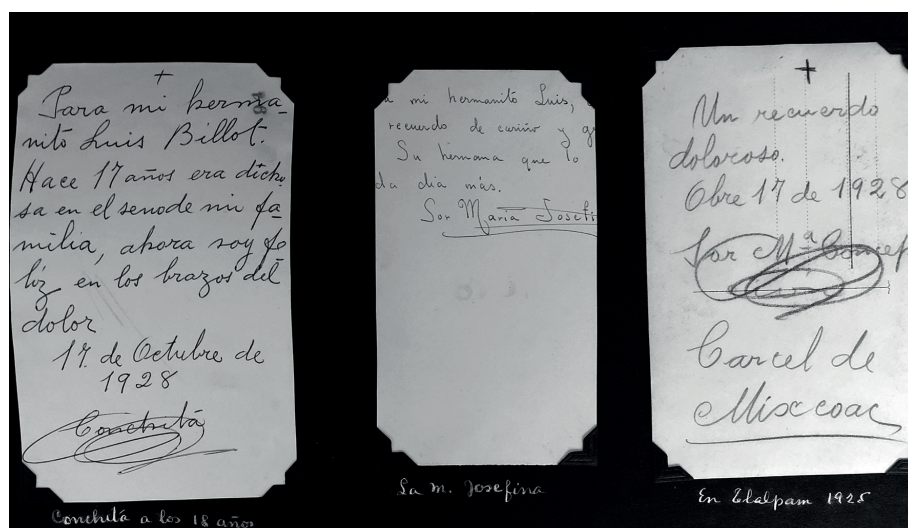 +
Para mi herma-
nito Luis Billot.
Hace 17 años era dicho-
sa en el seno de mi fa-
milia, ahora soy fe
liz en los brazos del
dolor
17. de Octubre de
1928
Conchita
Conchita a los 18 años
a mi hermanito Luis,
recuerdo de cariño y g
Su hermana que lo
da dia más.
Sor Maria Josefi
La m. Josefina
+
Un recuerdo
doloroso.
Obre 17 de 1928
Sor Mª Concep
Carcel de
Mixcoac
En Tlalpam 1928